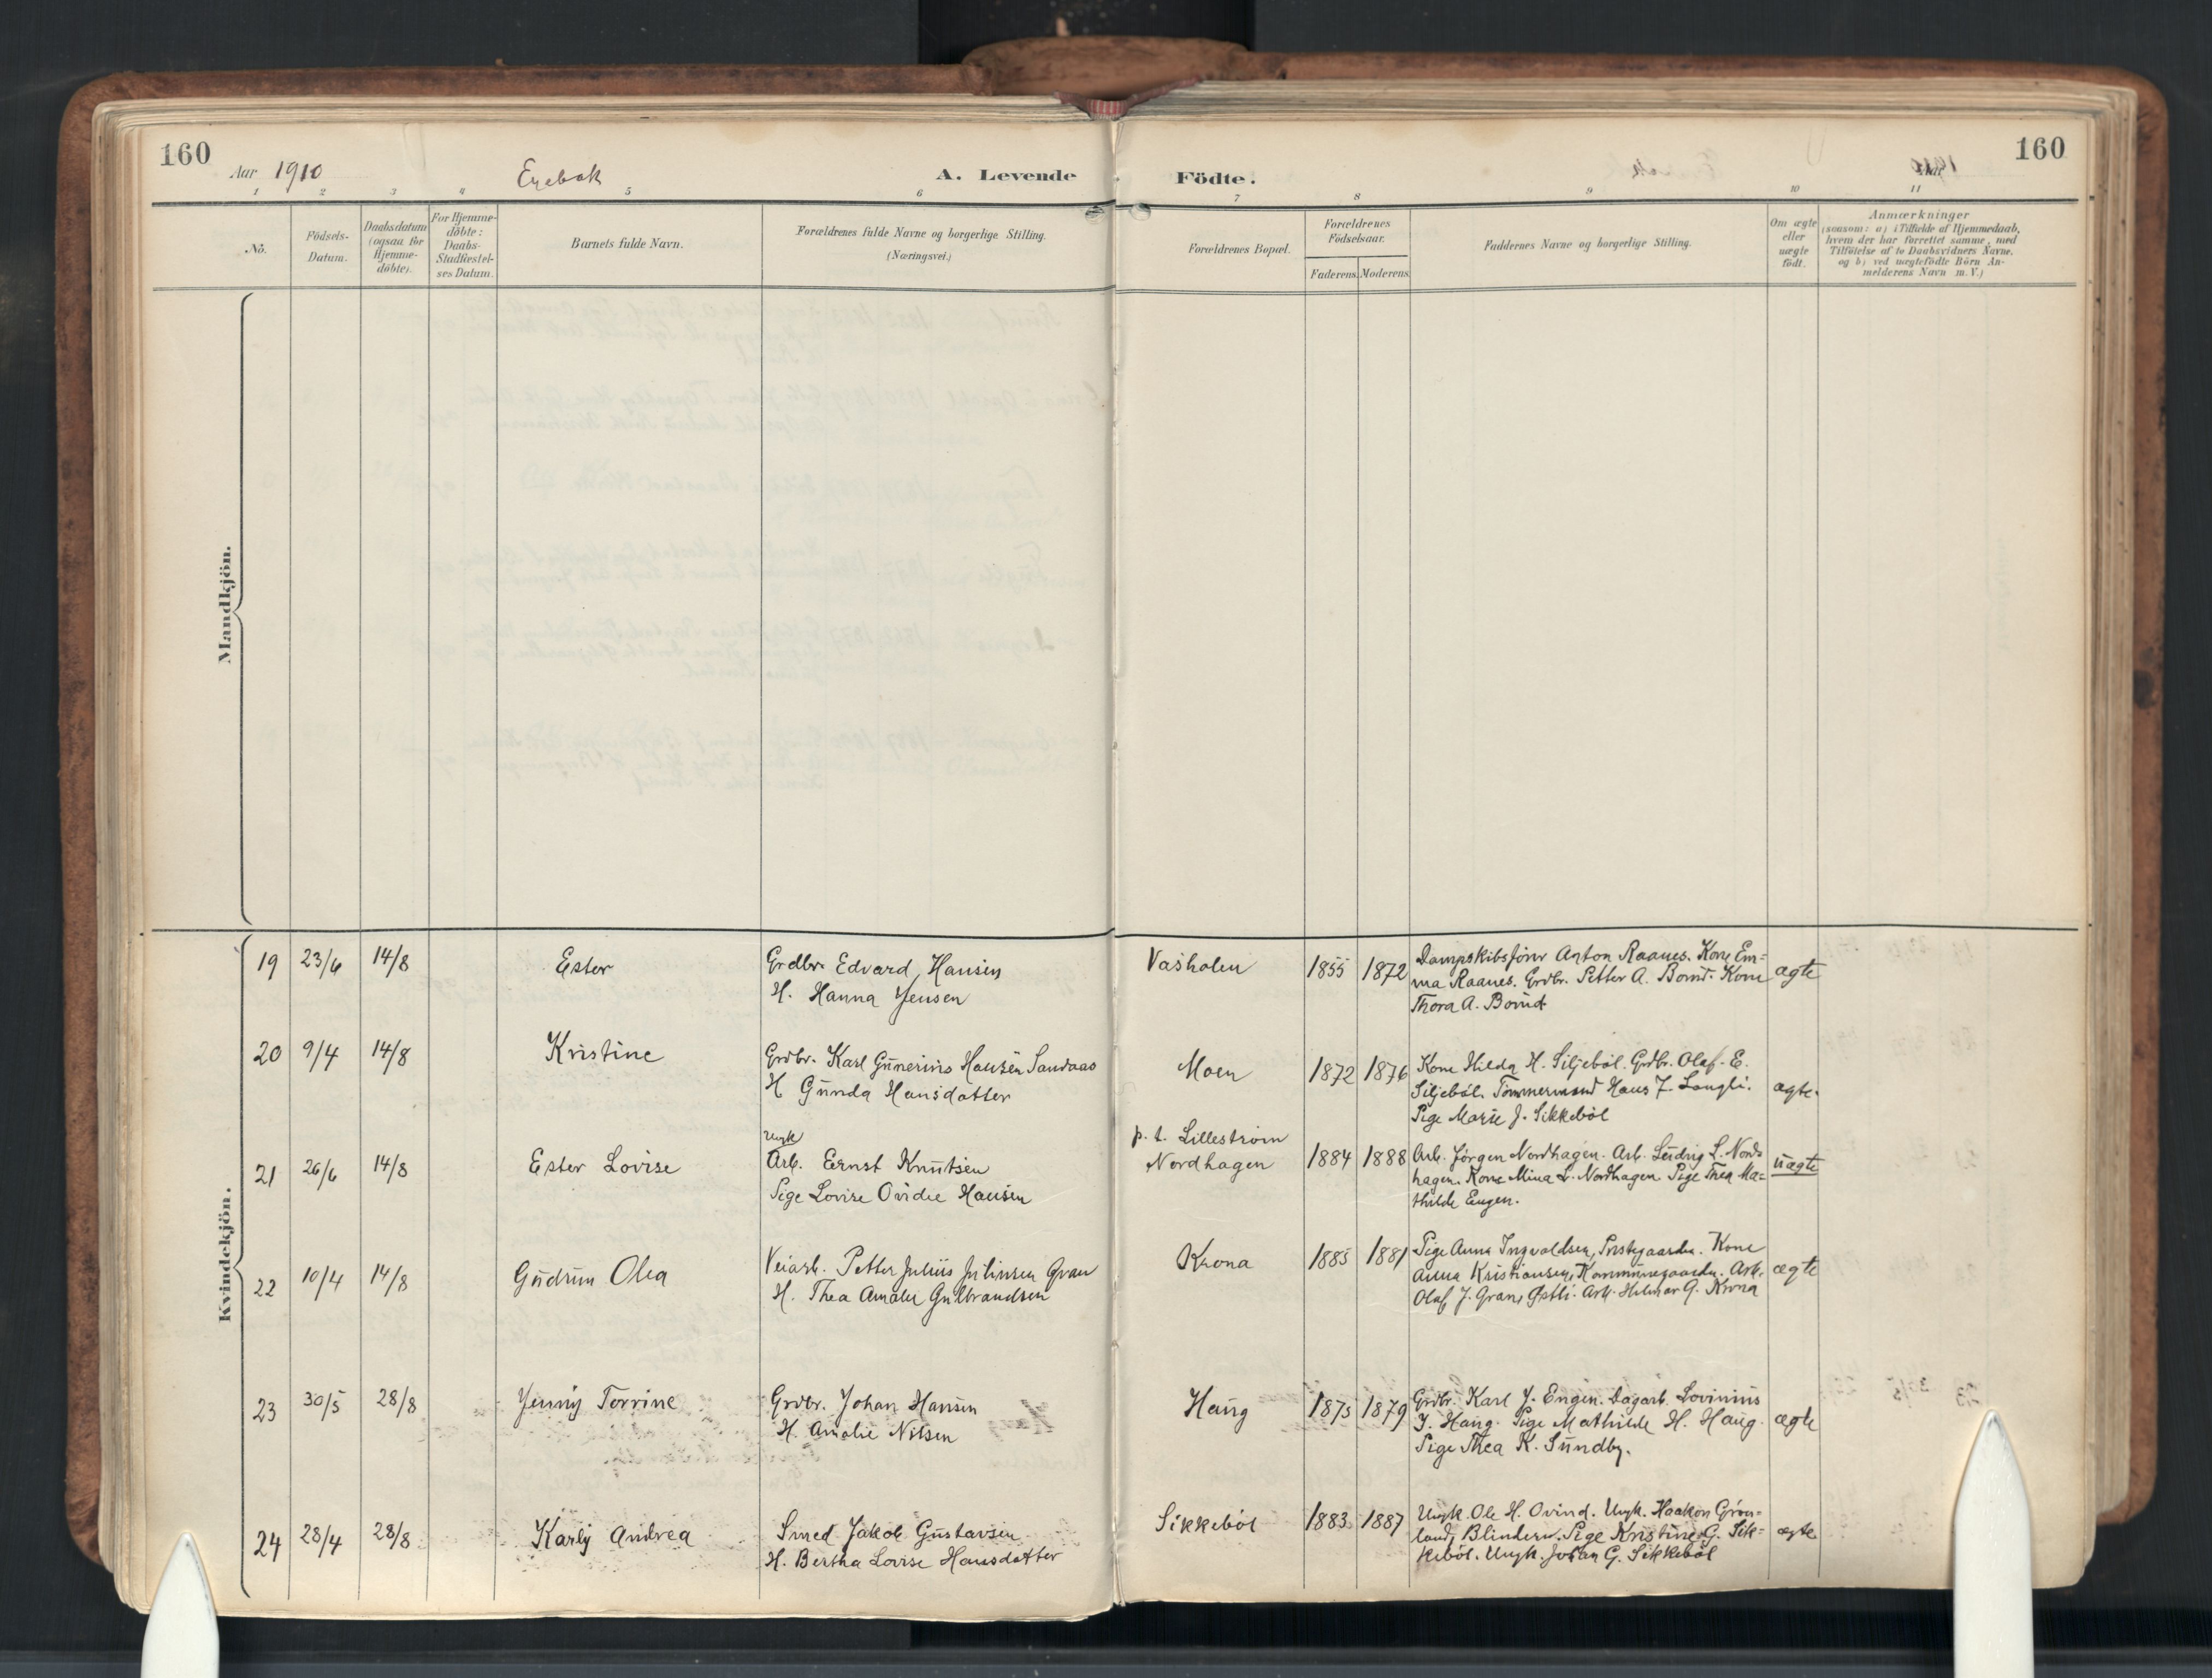 160
Aar 1910 Enebak A. Levende Födte. 160
1 2 3 4 5 6 7 8 9 10 11
No.
Födsels-Datum.
Daabsdatum (ogsaa for Hjemme-döbte).
For Hjemme-döbte: Daabs-Stadfæstel-ses Datum.
Barnets fulde Navn.
Forældrenes fulde Navne og borgerlige Stilling.
(Næringsvei.)
Forældrenes Bopæl.
Forældrenes Födselsaar.
Faderens. Moderens.
Faddernes Navne og borgerlige Stilling.
Om ægte eller uægte födt.
Anmærkninger
(saasom: a) i Tilfælde af Hjemmedaab,
hvem der har forrettet samme, med
Tilföielse af to Daabsvidners Navne,
og b) ved uægtefödte Börn An-
melderens Navn m. V.)
Mandkjön.
Kvindekjön.
19 23/6 14/8 Ester
Grdbr. Edvard Hansen
H. Hanna Jensen
Vasholen 1855 1872
Dampskibsförer Anton Raanes. Kone Em=
ma Raanes. Grdbr. Petter A. Börud. Kone
Thora A. Börud
ægte
20 9/4 14/8 Kristine
Grdbr. Karl Gunerius Hansen Sandaas
H. Gunda Hansdatter
Moen 1872 1876
Kone Hilda H. Siljeböl. Grdbr. Olaf E.
Siljeböl. Tömmermand Hans J. Langli.
Pige Marie J. Sikkeböl
ægte.
21 26/6 14/8 Ester Lovise
Ungk
Arb. Ernst Knutsen
Pige Lovise Ovidie Hansen
p. t. Lilleström
Nordhagen 1884 1888
Arb. Jörgen Nordhagen. Arb. Ludvig L. Nord=
hagen. Kone Mina L. Nordhagen. Pige Thea Ma=
thilde Engen.
uægte
22 10/4 14/8 Gudrun Olea
Veiarb. Petter Julius Julinsen Gran
H. Thea Amalie Gulbrandsen
Krona 1885 1881
Pige Anna Ingvaldsen, Prestegaarden. Kone
Anna Kristiansen, Kommunegaarden. Arb.
Olaf J. Gran, Østli. Arb. Hilmar G. Krona
ægte
23 30/5 28/8 Jenny Torrine
Grdbr. Johan Hansen
H. Amalie Nilsen
Haug 1875 1879
Grdbr. Karl J. Engen. Dagarb. Lovinius
J. Haug. Pige Mathilde H. Haug.
Pige Thea K. Sundby.
ægte
24 28/4 28/8 Karly Andrea
Smed Jakob Gustavsen
H. Bertha Lovise Hansdatter
Sikkeböl 1883 1887
Ungk. Ole H. Ovind. Ungk. Haakon Grön=
land, Blindern. Pige Kristine G. Sik=
keböl. Ungk. Johan G. Sikkeböl
ægte